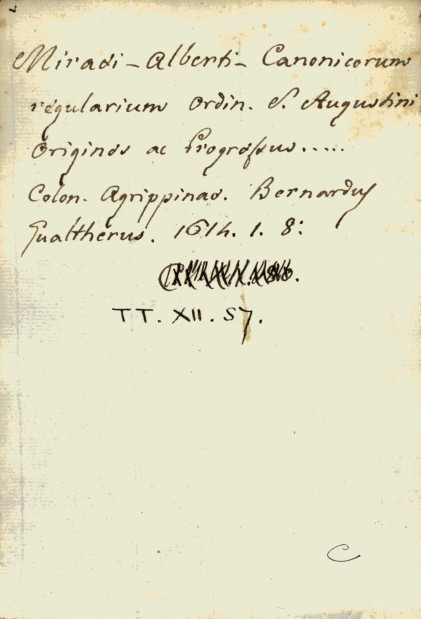 Miraei - Alberti - Canonicorum
regularium Ordin. S. Augustini
Origines ac Progressus.....
Colon. Agrippinae. Bernardus
Gualtherus. 1614. 1. 8:
TT. XII. 57.
C